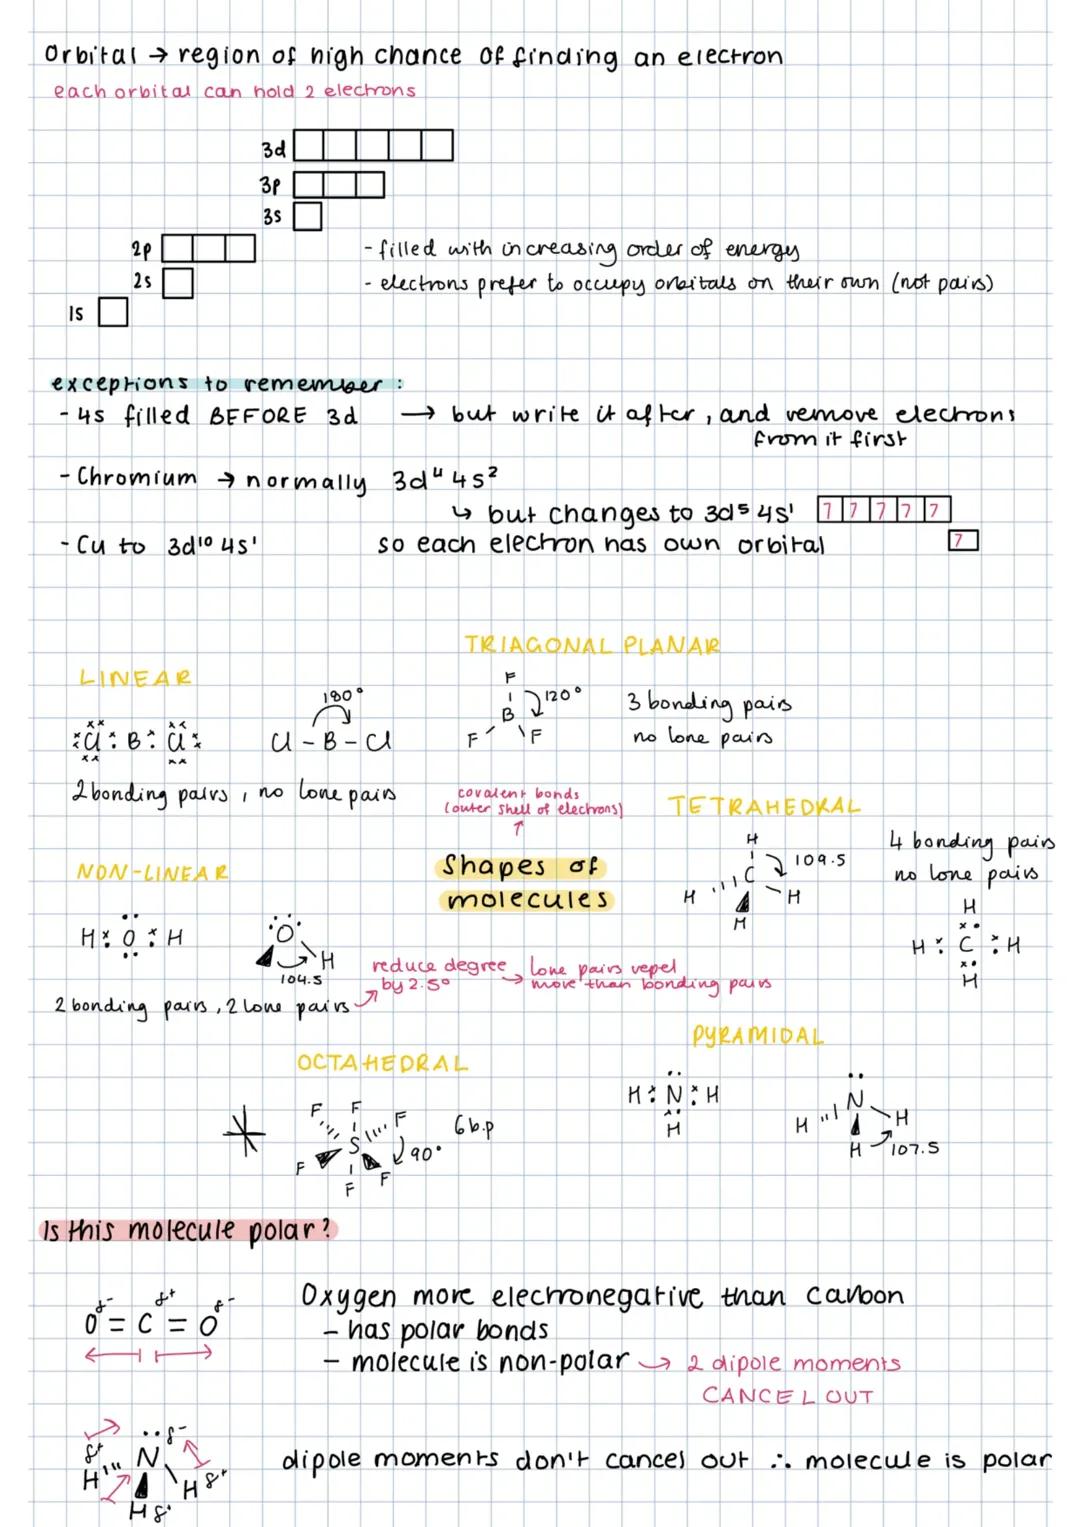 Orbital → region of high chance of finding an electron
each orbital can hold 2 electrons
3d
3p
3s
2p
2s
1s
- filled with increasing order of energy
- electrons prefer to occupy orbitals on their own (not pairs)
exceptions to remember :
- 4s filled BEFORE 3d → but write it after, and remove electrons
from it first
- Chromium → normally 3d⁴ 4s²
↳ but changes to 3d⁵ 4s¹ 1 1 1 1 1
so each electron has own orbital 1
- Cu to 3d¹⁰ 4s¹
LINEAR
Cl : B : Cl
180°
Cl - B - Cl
2 bonding pairs, no lone pairs
TRIAGONAL PLANAR
F
B 120°
F F
3 bonding pairs
no lone pairs
covalent bonds
(outer shell of electrons)
↑
Shapes of
molecules
TETRAHEDRAL
H
C 109.5
H H
H
4 bonding pairs
no lone pairs
H
H : C : H
H
NON-LINEAR
H : O : H
O
H
104.5
2 bonding pairs, 2 lone pairs
reduce degree
by 2.5°
→ lone pairs repel
more than bonding pairs
OCTAHEDRAL
F F F
S
F F F
90°
6 b.p
PYRAMIDAL
H : N : H
H
N
H H
H 107.5
Is this molecule polar?
δ- δ+ δ-
O = C = O
Oxygen more electronegative than carbon
- has polar bonds
- molecule is non-polar → 2 dipole moments
CANCEL OUT
δ-
δ+ N
H H δ+
H δ+
dipole moments don't cancel out ∴ molecule is polar